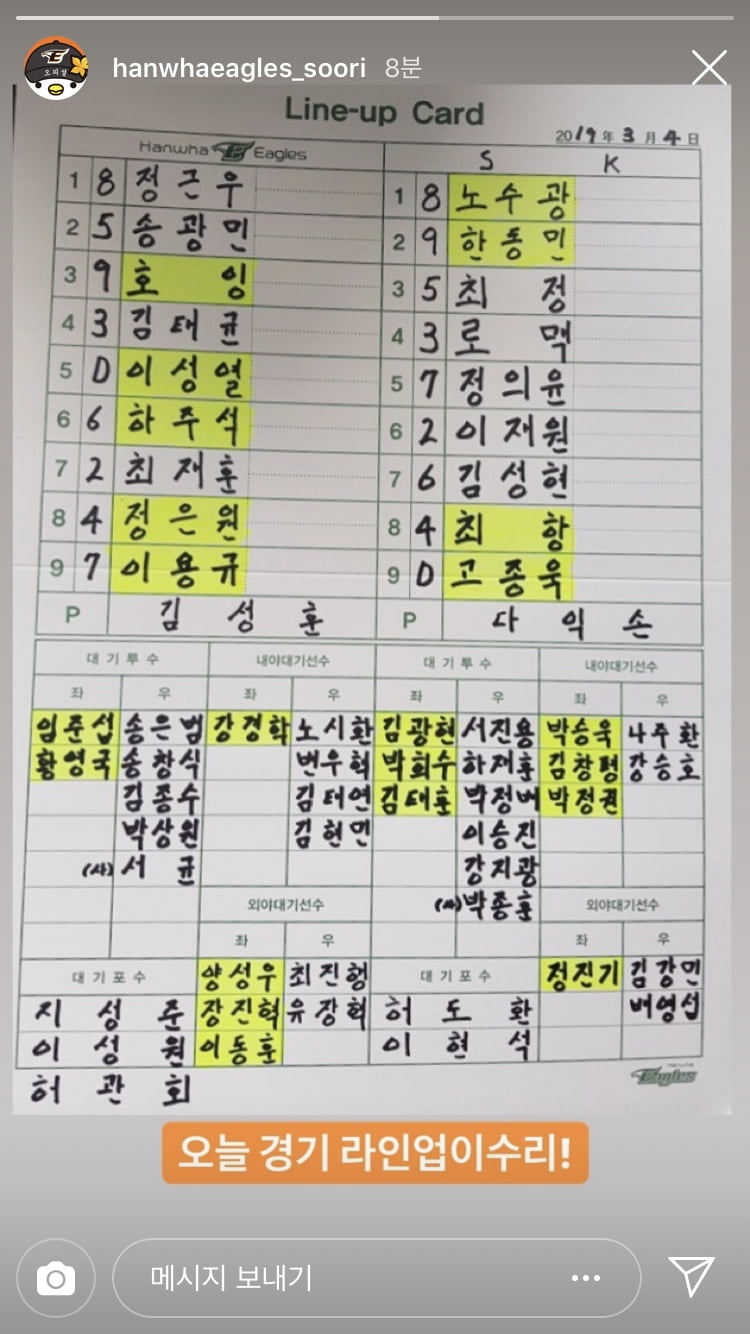 hanwhaeagles_soori 8분
Line-up Card
2019年 3月 4日
Hanwha Eagles
S K
1 8 정근우
2 5 송광민
3 9 호잉
4 3 김태균
5 D 이성열
6 6 하주석
7 2 최재훈
8 4 정은원
9 7 이용규
P 김성훈
1 8 노수광
2 9 한동민
3 5 최정
4 3 로맥
5 7 정의윤
6 2 이재원
7 6 김성현
8 4 최항
9 D 고종욱
P 다익손
대기투수 내야대기선수 대기투수 내야대기선수
좌 우 좌 우 좌 우 좌 우
임준섭 송은범 강경학 노시환 김광현 서진용 박승욱 나주환
황영국 송창식 변우혁 박희수 하재훈 김창평 강승호
김종수 김태연 김태훈 박정배 박정권
박상원 김현민 이승진
(사) 서균 강지광
외야대기선수 (사) 박종훈 외야대기선수
좌 우 좌 우
대기포수 양성우 최진행 대기포수 정진기 김강민
지성준 장진혁 유장혁 허도환 배영섭
이성원 이동훈 이현석
허관회
Hanwha Eagles
오늘 경기 라인업이수리!
메시지 보내기